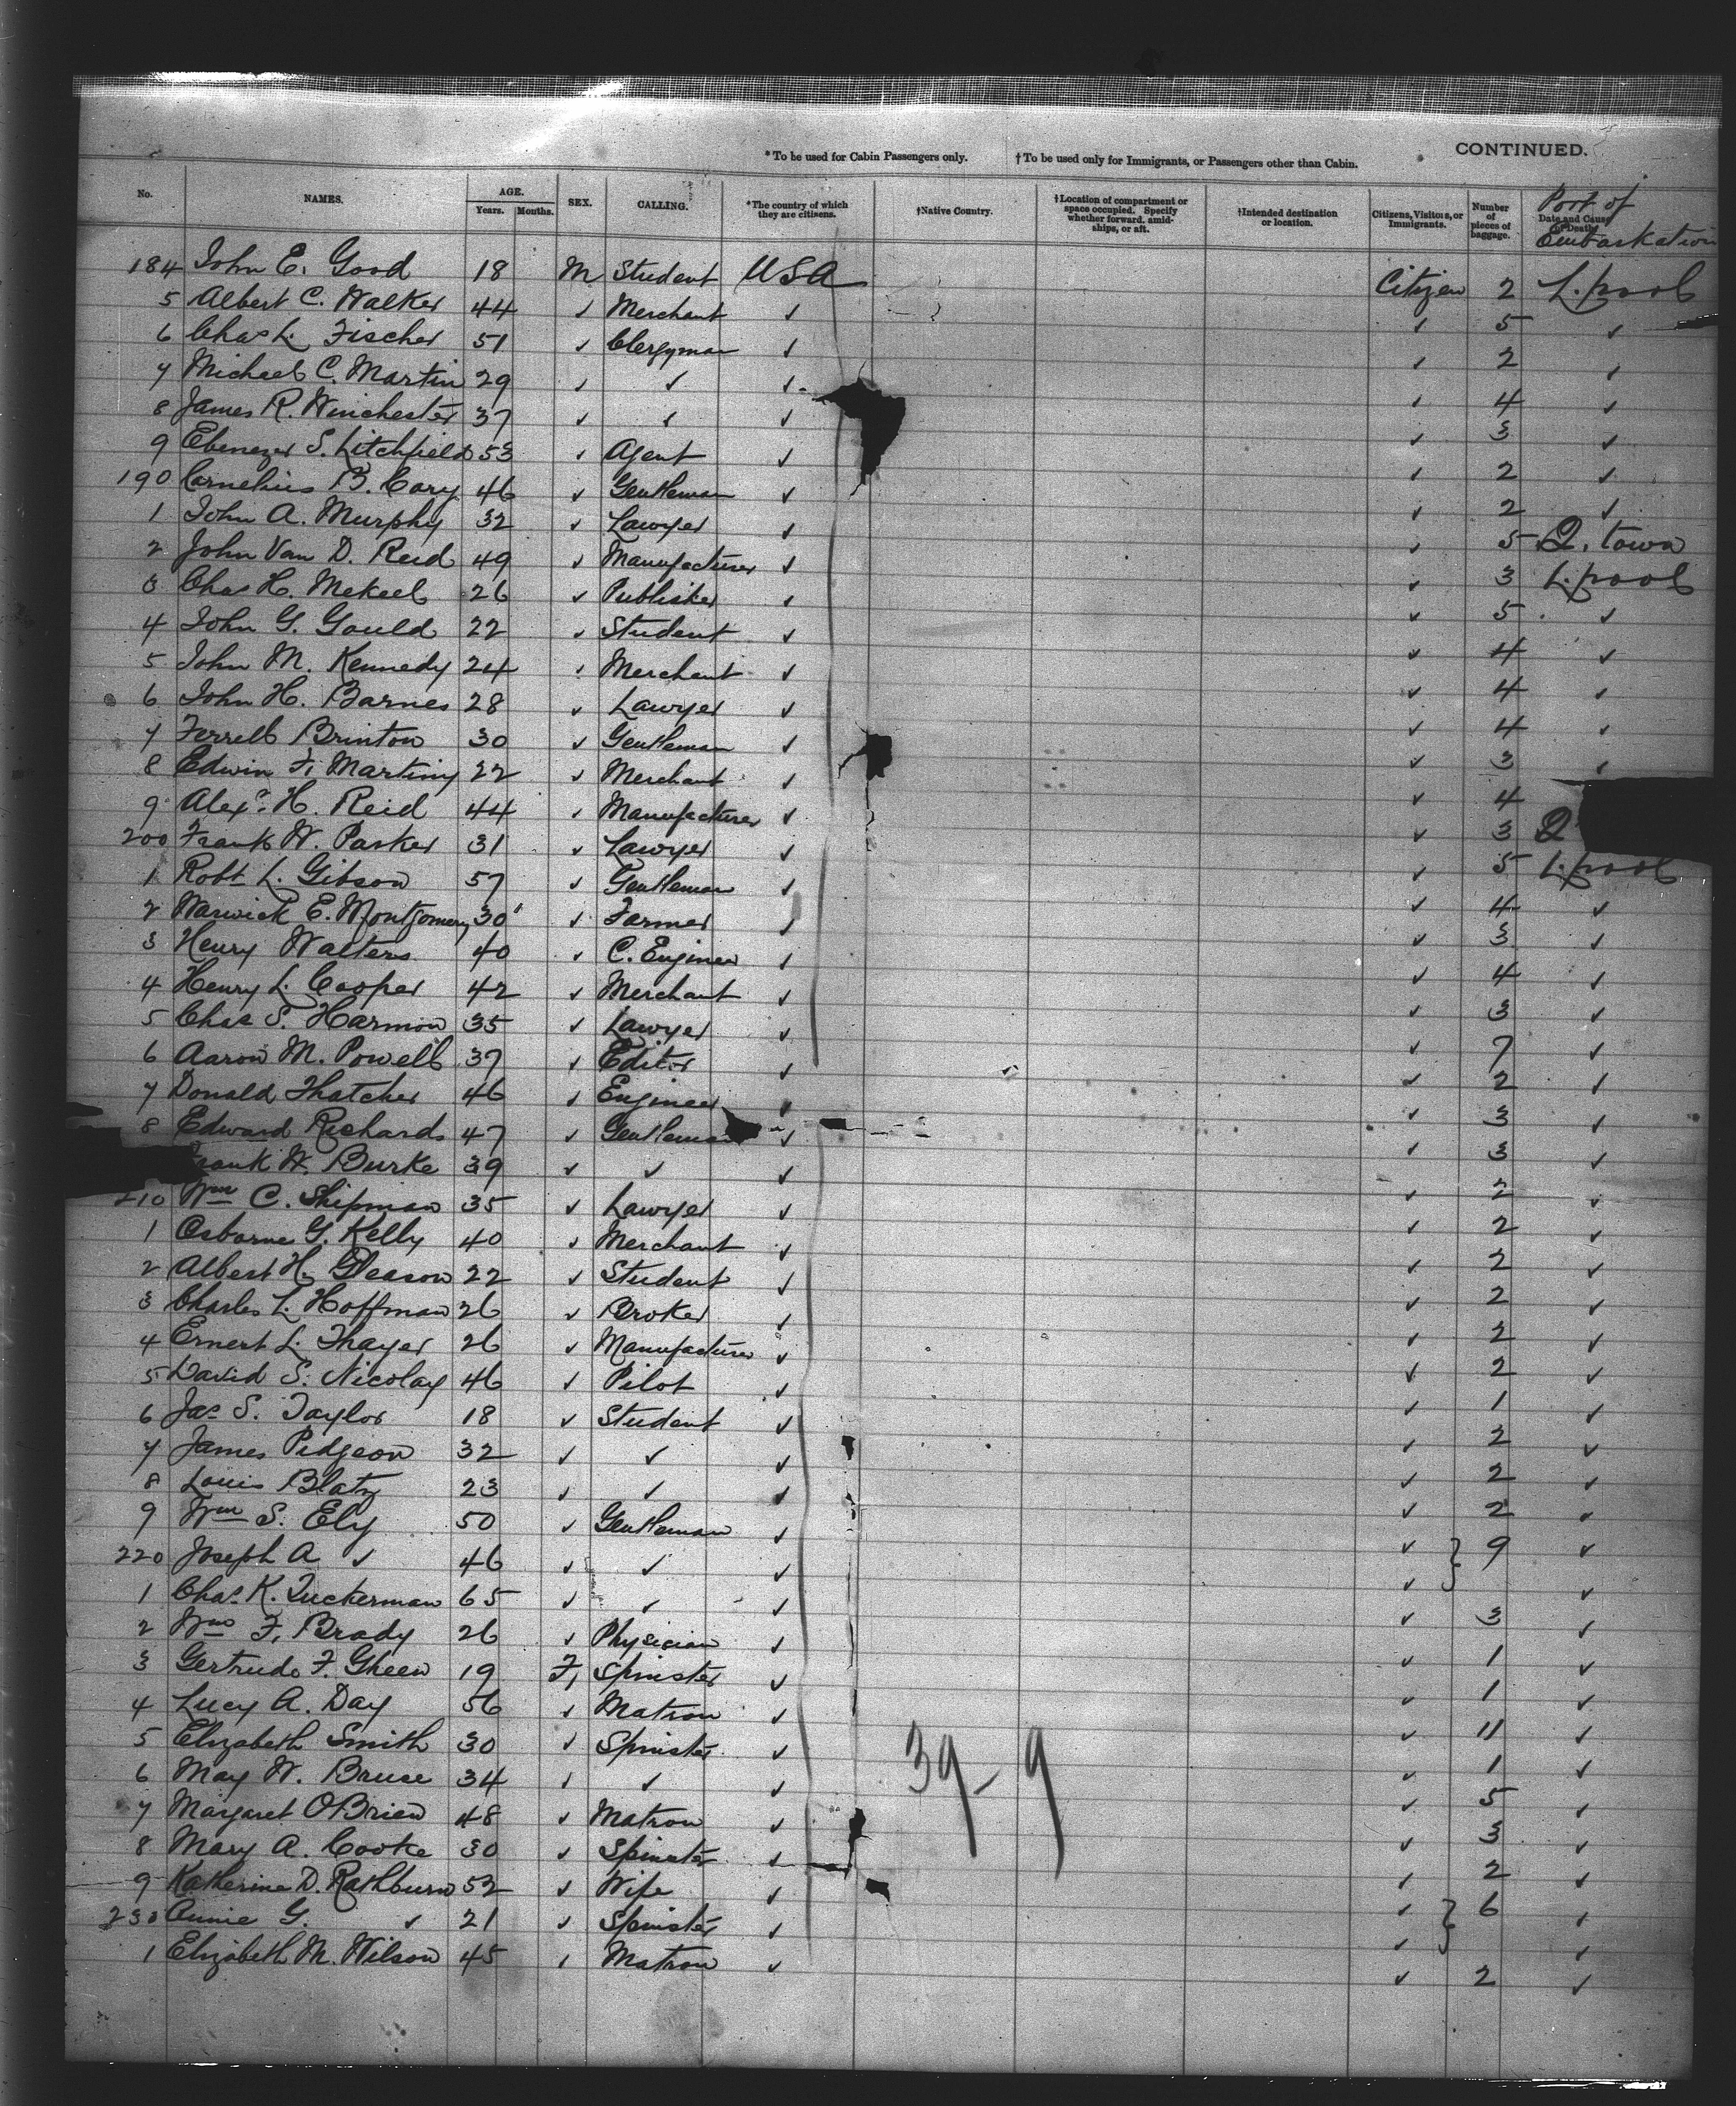 CONTINUED.
*To be used for Cabin Passengers only. †To be used only for Immigrants, or Passengers other than Cabin.
No. NAMES. AGE. Years. Months. SEX. CALLING. *The country of which they are citizens. †Native Country. †Location of compartment or space occupied. Specify whether forward, amidships, or aft. †Intended destination or location. Citizens, Visitors, or Immigrants. Number of pieces of baggage. Date and Cause of Death. Port of Embarkation
184 John E. Good 18 M Student USA Citizen 2 L.pool
5 Albert C. Walker 44 ✓ Merchant ✓ ✓ 5 ✓
6 Chas L. Fischer 51 ✓ Clergyman ✓ ✓ 2 ✓
7 Michael C. Martin 29 ✓ ✓ ✓ ✓ 4 ✓
8 James R. Winchester 37 ✓ ✓ ✓ ✓ 3 ✓
9 Ebenezer S. Litchfield 53 ✓ Agent ✓ ✓ 2 ✓
190 Cornelius B. Cory 46 ✓ Gentleman ✓ ✓ 2 ✓
1 John A. Murphy 32 ✓ Lawyer ✓ ✓ 5 Q. town
2 John Van D. Reid 49 ✓ Manufacturer ✓ ✓ 3 L.pool
3 Chas H. Mekeel 26 ✓ Publisher ✓ ✓ 5 ✓
4 John G. Gould 22 ✓ Student ✓ ✓ 4 ✓
5 John M. Kennedy 24 ✓ Merchant ✓ ✓ 4 ✓
6 John H. Barnes 28 ✓ Lawyer ✓ ✓ 4 ✓
7 Ferrell Brinton 30 ✓ Gentleman ✓ ✓ 3 ✓
8 Edwin F. Martiny 22 ✓ Merchant ✓ ✓ 4
9 Alexr. H. Reid 44 ✓ Manufacturer ✓ ✓ 3 Q
200 Frank W. Parker 31 ✓ Lawyer ✓ ✓ 5 L.pool
1 Robt L. Gibson 57 ✓ Gentleman ✓ ✓ 4 ✓
2 Warwick E. Montgomery 30 ✓ Farmer ✓ ✓ 3 ✓
3 Henry Walters 40 ✓ C. Engineer ✓ ✓ 4 ✓
4 Henry L. Cooper 42 ✓ Merchant ✓ ✓ 3 ✓
5 Chas S. Harmon 35 ✓ Lawyer ✓ ✓ 7 ✓
6 Aaron M. Powell 37 ✓ Editor ✓ ✓ 2 ✓
7 Donald Thatcher 46 ✓ Engineer ✓ ✓ 3 ✓
8 Edward Richards 47 ✓ Gentleman ✓ ✓ 3 ✓
rank W. Burke 39 ✓ ✓ ✓ ✓ 2 ✓
210 Wm C. Shipman 35 ✓ Lawyer ✓ ✓ 2 ✓
1 Osborne G. Kelly 40 ✓ Merchant ✓ ✓ 2 ✓
2 Albert H. Gleason 22 ✓ Student ✓ ✓ 2 ✓
3 Charles L. Hoffman 26 ✓ Broker ✓ ✓ 2 ✓
4 Ernest L. Thayer 26 ✓ Manufacturer ✓ ✓ 2 ✓
5 David S. Nicolay 46 ✓ Pilot ✓ ✓ 1 ✓
6 Jas S. Taylor 18 ✓ Student ✓ ✓ 2 ✓
7 James Pidgeon 32 ✓ ✓ ✓ ✓ 2 ✓
8 Louis Blatz 23 ✓ ✓ ✓ ✓ 2 ✓
9 Wm S. Ely 50 ✓ Gentleman ✓ ✓ } 9 ✓
220 Joseph A ✓ 46 ✓ ✓ ✓ ✓ ✓
1 Chas. K. Tuckerman 65 ✓ ✓ ✓ ✓ 3 ✓
2 Wm F. Brady 26 ✓ Physician ✓ ✓ 1 ✓
3 Gertrude F. Gheen 19 F. Spinster ✓ ✓ 1 ✓
4 Lucy A. Day 56 ✓ Matron ✓ ✓ 11 ✓
5 Elizabeth Smith 30 ✓ Spinster ✓ ✓ 1 ✓
6 May W. Bruse 34 ✓ ✓ ✓ ✓ 5 ✓
7 Margaret OBrien 48 ✓ Matron ✓ ✓ 3 ✓
8 Mary A. Cooke 30 ✓ Spinster ✓ ✓ 2 ✓
9 Katherine D. Rathburn 52 ✓ Wife ✓ ✓ } 6 ✓
230 Annie G. ✓ 21 ✓ Spinster ✓ ✓ ✓
1 Elizabeth M. Wilson 45 ✓ Matron ✓ ✓ 2 ✓
39 - 9